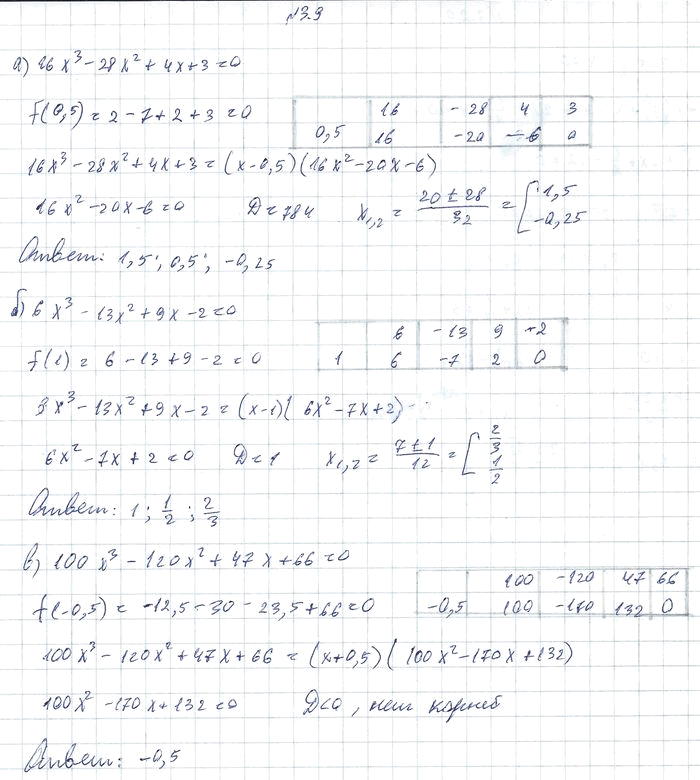 №3.9
а) 16x³ - 28x² + 4x + 3 = 0
f(0,5) = 2 - 7 + 2 + 3 = 0
16 -28 4 3
0,5 16 -20 -6 0
16x³ - 28x² + 4x + 3 = (x - 0,5)(16x² - 20x - 6)
16x² - 20x - 6 = 0 D = 784 x₁,₂ = (20 ± 28)/32 = [1,5 -0,25
Ответ: 1,5; 0,5; -0,25
б) 6x³ - 13x² + 9x - 2 = 0
6 -13 9 +2
f(1) = 6 - 13 + 9 - 2 = 0 1 6 -7 2 0
3x³ - 13x² + 9x - 2 = (x - 1)(6x² - 7x + 2)
6x² - 7x + 2 = 0 D = 1 x₁,₂ = (7 ± 1)/12 = [2/3 1/2
Ответ: 1; 1/2; 2/3
в) 100x³ - 120x² + 47x + 66 = 0
100 -120 47 66
f(-0,5) = -12,5 - 30 - 23,5 + 66 = 0 -0,5 100 -170 132 0
100x³ - 120x² + 47x + 66 = (x + 0,5)(100x² - 170x + 132)
100x² - 170x + 132 = 0 D < 0, нет корней
Ответ: -0,5